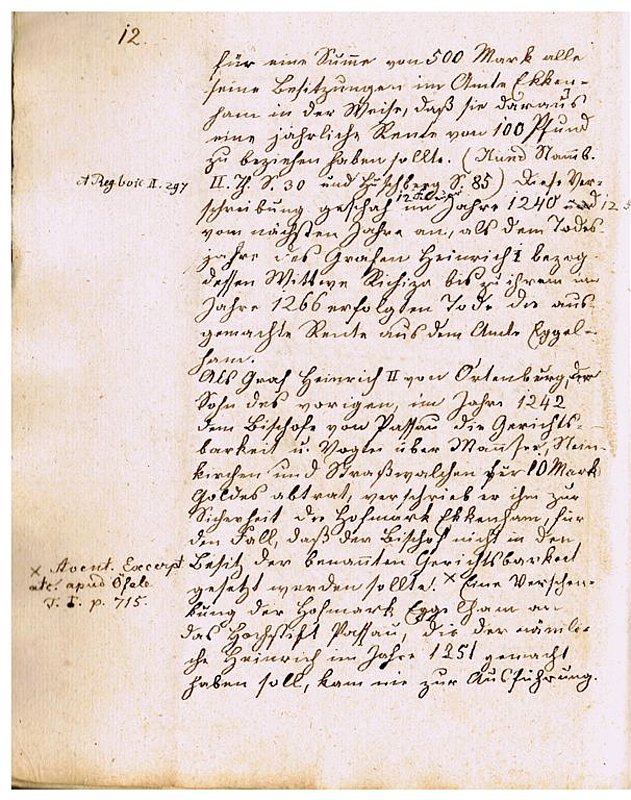 12.
für eine Summe von 500 Mark alle
seine Besitzungen im Amte Ekken-
ham in der Weise, daß sie daraus
eine jährliche Rente von 100 Pfund
zu beziehen haben sollte. (Hund Stammb.
A Reg boic II. 297
II. Th. S. 30 und Huschberg S. 85) Diese Ver-
schreibung geschah im Jahre 1240 und
vom nächsten Jahre an, als dem Todes-
jahre des Grafen Heinrich I bezog
dessen Wittwe Richiza bis zu ihrem im
Jahre 1266 erfolgten Tode die aus-
gemachte Rente aus dem Amte Eggel-
ham.
Als Graf Heinrich II von Ortenburg, der
Sohn des vorigen, im Jahre 1242
dem Bischofe von Passau die Gerichts-
barkeit u. Vogtei über
kirchen und Straßwalchen für 10 Mark
Goldes abtrat, verschrieb er ihm zur
Sicherheit die Hofmark Ekkenham, für
den Fall, daß der Bischof nicht in den
Besitz der benannten Gerichtsbarkeit
gesetzt werden sollte. × Eine Verschen-
× Avent. Excerpt
etc. apud Öfele
T. I. p. 715.
kung der Hofmark Eggelham an
das Hochstift Passau, die der nämli-
che Heinrich im Jahre 1251 gemacht
haben soll, kam nie zur Ausführung.